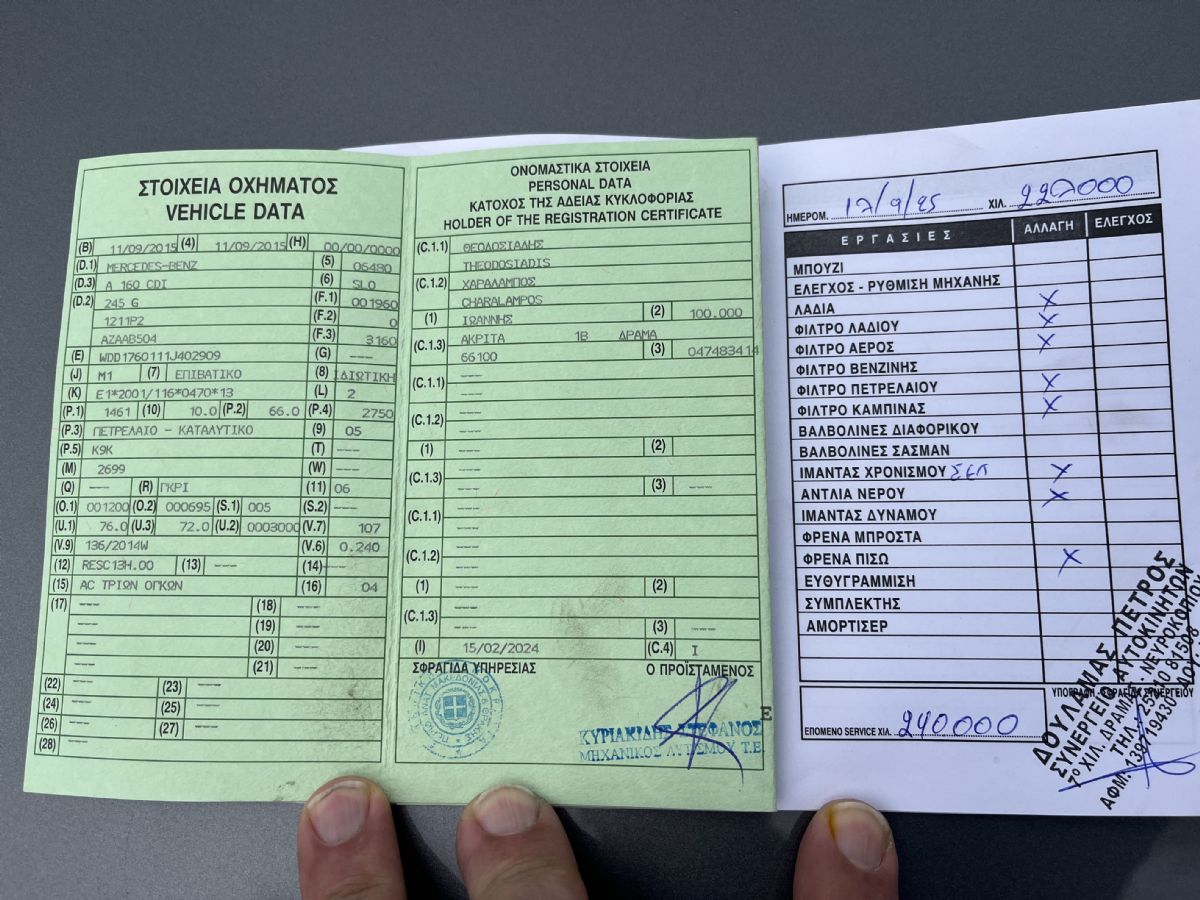 ΣΤΟΙΧΕΙΑ ΟΧΗΜΑΤΟΣ
VEHICLE DATA
(B) 11/09/2015 (4) 11/09/2015 (H) 00/00/0000
(D.1) MERCEDES-BENZ (5) 06480
(D.3) A 160 CDI (6) 5L0
(D.2) 245 G (F.1) 001960
1211P2 (F.2) 0
AZAAB504 (F.3) 3160
(E) WDD1760111J402909 (G) ---
(J) M1 (7) ΕΠΙΒΑΤΙΚΟ (8) ΙΔΙΩΤΙΚΗ
(K) E1*2001/116*0470*13 (L) 2
(P.1) 1461 (10) 10.0 (P.2) 66.0 (P.4) 2750
(P.3) ΠΕΤΡΕΛΑΙΟ - ΚΑΤΑΛΥΤΙΚΟ (9) 05
(P.5) K9K (T) ---
(M) 2699 (W) ---
(Q) --- (R) ΓΚΡΙ (11) 06
(O.1) 001200 (O.2) 000695 (S.1) 005 (S.2) ---
(U.1) 76.0 (U.3) 72.0 (U.2) 0003000 (V.7) 107
(V.9) 136/2014W (V.6) 0.240
(12) RESC13H.00 (13) --- (14) ---
(15) AC ΤΡΙΩΝ ΟΓΚΩΝ (16) 04
(17) --- (18) ---
--- (19) ---
--- (20) ---
--- (21) ---
(22) --- (23) ---
(24) --- (25) ---
(26) --- (27) ---
(28) ---
ΟΝΟΜΑΣΤΙΚΑ ΣΤΟΙΧΕΙΑ
PERSONAL DATA
ΚΑΤΟΧΟΣ ΤΗΣ ΑΔΕΙΑΣ ΚΥΚΛΟΦΟΡΙΑΣ
HOLDER OF THE REGISTRATION CERTIFICATE
(C.1.1) ΘΕΟΔΟΣΙΑΔΗΣ
THEODOSIADIS
(C.1.2) ΧΑΡΑΛΑΜΠΟΣ
CHARALAMPOS
(1) ΙΩΑΝΝΗΣ (2) 100.000
(C.1.3) ΑΚΡΙΤΑ 1Β ΔΡΑΜΑ
66100 (3) 047483414
(C.1.1) ---
---
(C.1.2) ---
---
(1) --- (2)
(C.1.3) ---
--- (3) ---
(C.1.1) ---
---
(C.1.2) ---
---
(1) (2)
(C.1.3) ---
--- (3) ---
(I) 15/02/2024 (C.4) I
ΣΦΡΑΓΙΔΑ ΥΠΗΡΕΣΙΑΣ Ο ΠΡΟΪΣΤΑΜΕΝΟΣ
ΚΥΡΙΑΚΙΔΗΣ ΣΤΕΦΑΝΟΣ
ΜΗΧΑΝΙΚΟΣ ΑΥΤ/ΣΜΟΥ Τ.Ε.
E
ΗΜΕΡΟΜ. 12/9/25 ΧΙΛ. 222000
ΕΡΓΑΣΙΕΣ ΑΛΛΑΓΗ ΕΛΕΓΧΟΣ
ΜΠΟΥΖΙ
ΕΛΕΓΧΟΣ - ΡΥΘΜΙΣΗ ΜΗΧΑΝΗΣ
ΛΑΔΙΑ X
ΦΙΛΤΡΟ ΛΑΔΙΟΥ X
ΦΙΛΤΡΟ ΑΕΡΟΣ X
ΦΙΛΤΡΟ ΒΕΝΖΙΝΗΣ
ΦΙΛΤΡΟ ΠΕΤΡΕΛΑΙΟΥ X
ΦΙΛΤΡΟ ΚΑΜΠΙΝΑΣ X
ΒΑΛΒΟΛΙΝΕΣ ΔΙΑΦΟΡΙΚΟΥ
ΒΑΛΒΟΛΙΝΕΣ ΣΑΣΜΑΝ
ΙΜΑΝΤΑΣ ΧΡΟΝΙΣΜΟΥ ΣΕΤ X
ΑΝΤΛΙΑ ΝΕΡΟΥ X
ΙΜΑΝΤΑΣ ΔΥΝΑΜΟΥ
ΦΡΕΝΑ ΜΠΡΟΣΤΑ
ΦΡΕΝΑ ΠΙΣΩ X
ΕΥΘΥΓΡΑΜΜΙΣΗ
ΣΥΜΠΛΕΚΤΗΣ
ΑΜΟΡΤΙΣΕΡ
ΥΠΟΓΡΑΦΗ - ΣΦΡΑΓΙΔΑ ΣΥΝΕΡΓΕΙΟΥ
ΕΠΟΜΕΝΟ SERVICE ΧΙΛ. 240000
ΔΟΥΛΑΜΙΑΣ ΠΕΤΡΟΣ
ΣΥΝΕΡΓΕΙΟ ΑΥΤΟΚΙΝΗΤΩΝ
7ο ΧΙΛ. ΔΡΑΜΑΣ - ΝΕΥΡΟΚΟΠΙΟΥ
ΤΗΛ. 25210 81508